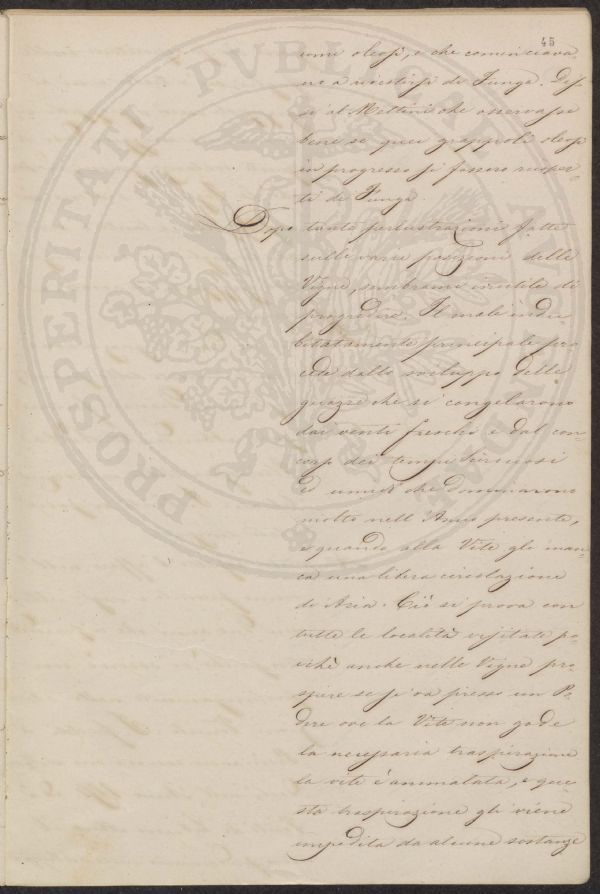 45
umi oleosi, e che cominciava-
no a vestirsi di Funga. Dis-
si al Mettini che osservasse
bene se quei grappoli oleosi
in progresso si fossero ricoper-
ti di Funga.
Dopo tante perlustrazioni fatte
sulle varie posizioni delle
Vigne, sembrami inutile di
progredire. Il male indu-
bitatamente principale pro-
cede dallo sviluppo delle
che si congelarono
dai venti freschi e dal con-
corso dei tempi
ed umidi che dominarono
molto nell'Anno presente,
e quando alla Vite gli man-
ca una libera circolazione
di Aria. Ciò si prova con
tutte le località visitate po-
ichè anche nelle Vigne pro-
spere se si va presso un Po-
dere ove la Vite non gode
la necessaria traspirazione
la vite è ammalata, e que-
sta traspirazione gli viene
impedita da alcune sostanze
PROSPERITATI PUBLICAE AUGENDAE